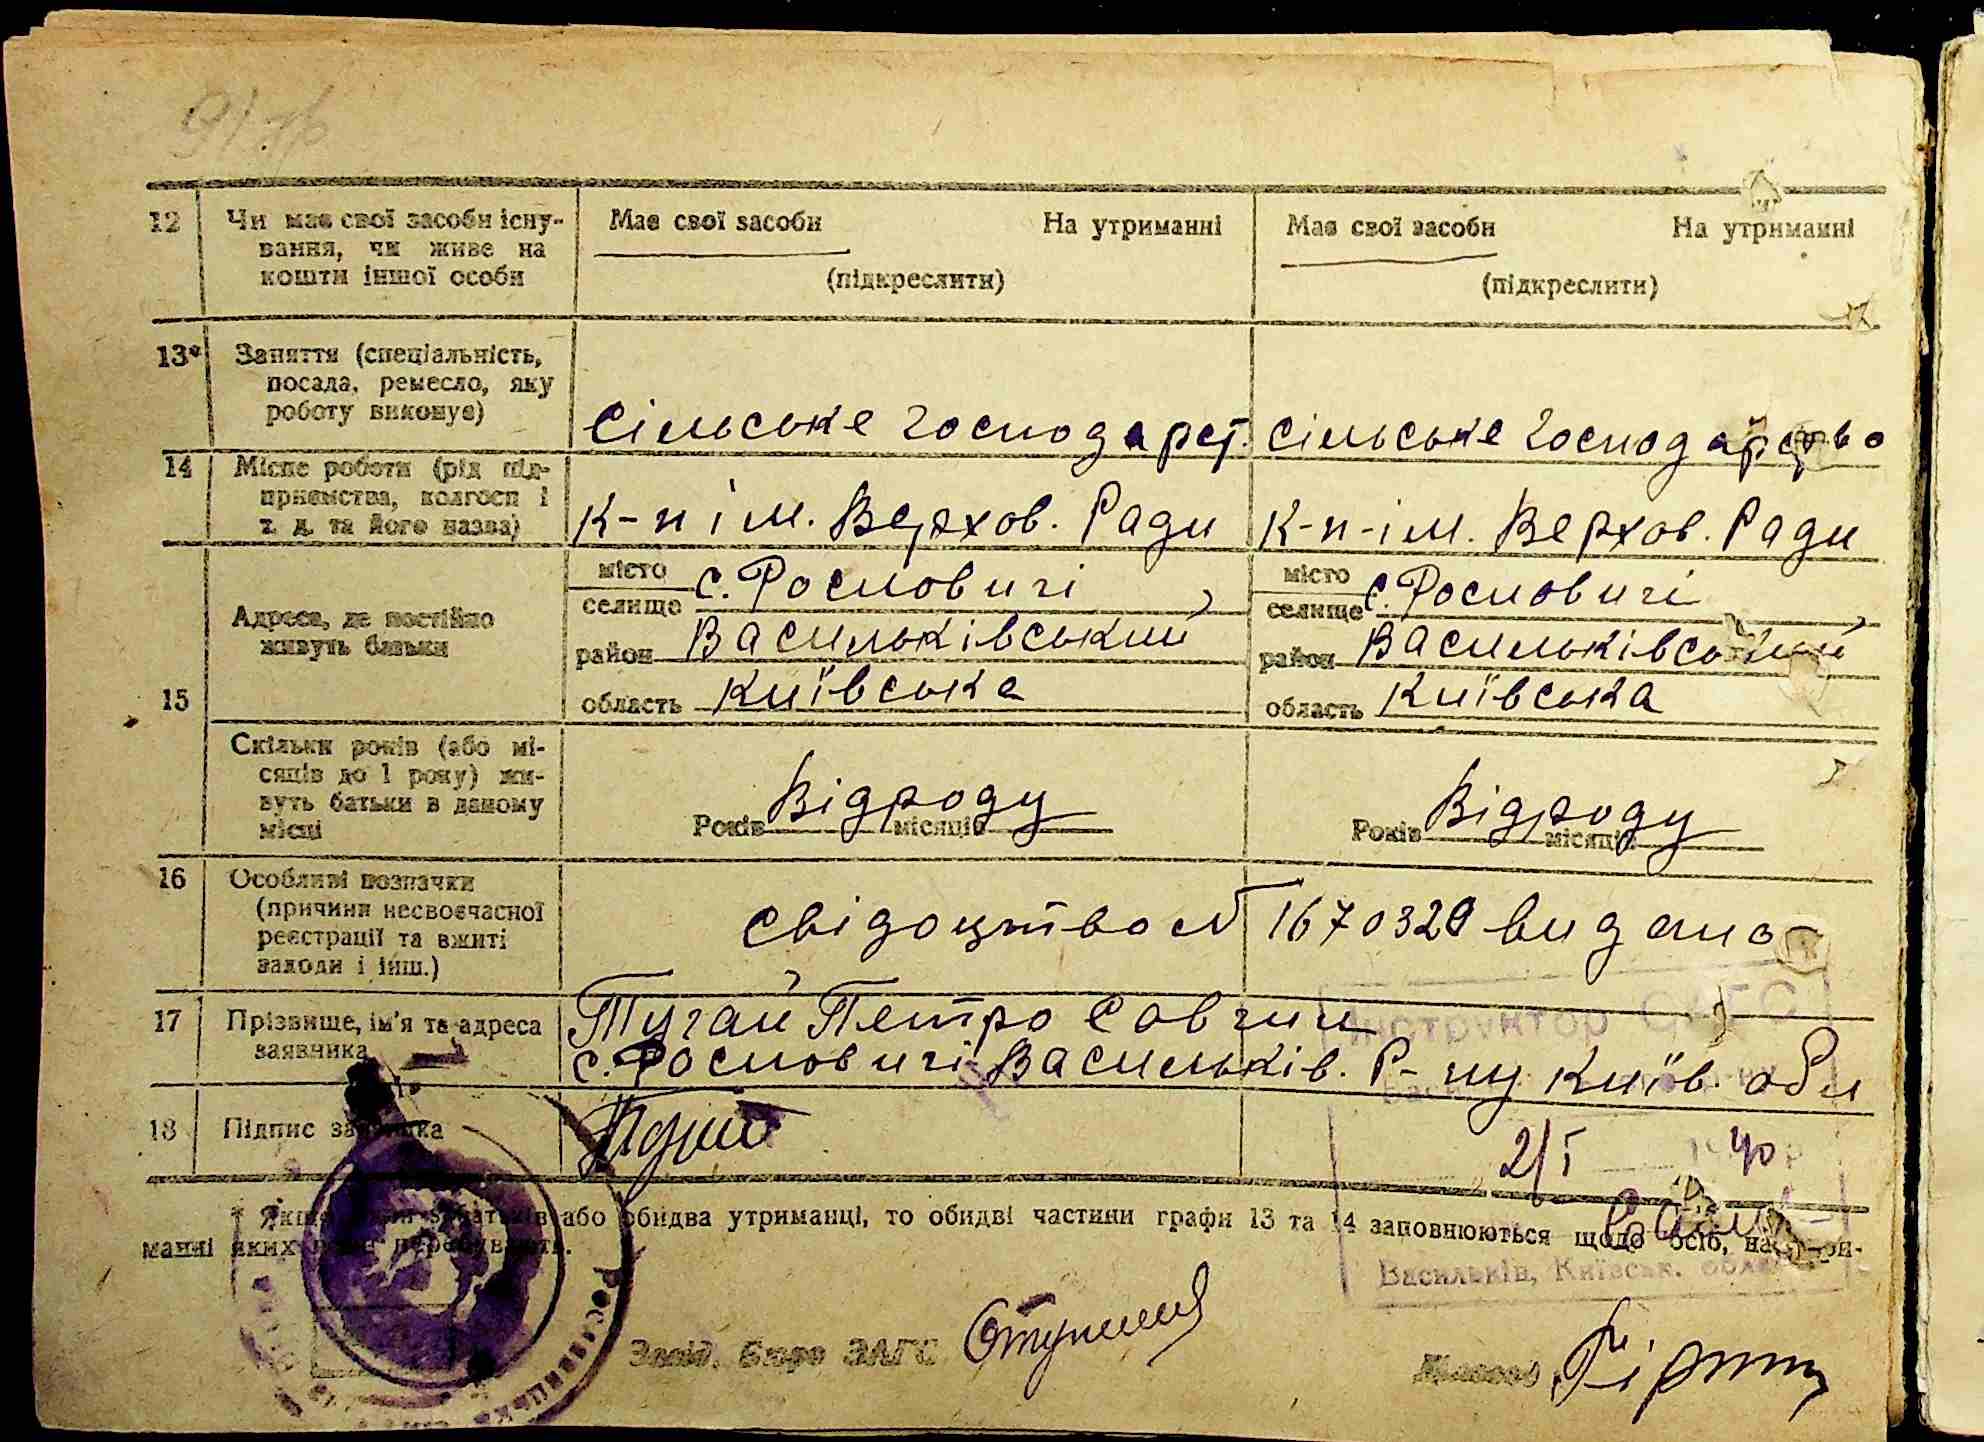 12 Чи має свої засоби існу-
вання, чи живе на
кошти іншої особи
Має свої засоби На утриманні
(підкреслити)
Має свої засоби На утриманні
(підкреслити)
13* Заняття (спеціальність,
посада, ремесло, яку
роботу виконує)
Сільське господарст. Сільське господарство
14 Місце роботи (рід під-
приємства, колгосп і
т. д. та його назва)
К-п ім. Верхов. Ради К-п-ім. Верхов. Ради
15 Адреса, де постійно
живуть батьки
місто
селище с. Рословичі
район Васильківський
область Київська
місто
селище с. Рословичі
район Васильківський
область Київська
Скільки років (або мі-
сяців до 1 року) жи-
вуть батьки в даному
місці
Років Відроду місяців
Років Відроду місяців
16 Особливі позначки
(причини несвоєчасної
реєстрації та вжиті
заходи і інш.)
Свідоцтво № 1670320 видано
17 Прізвище, ім'я та адреса
заявника
Тугай Петро Савчин
с. Рословичі Васильків. Р-ну Київ. обл
Інструктор
18 Підпис заявника
2/I 40
* Якщо або обидва утриманці, то обидві частини графи 13 та 14 заповнюються щодо осіб, на утри-
манні яких перебувають.
Васильків, Київськ. обл
Завід. бюро ЗАГС